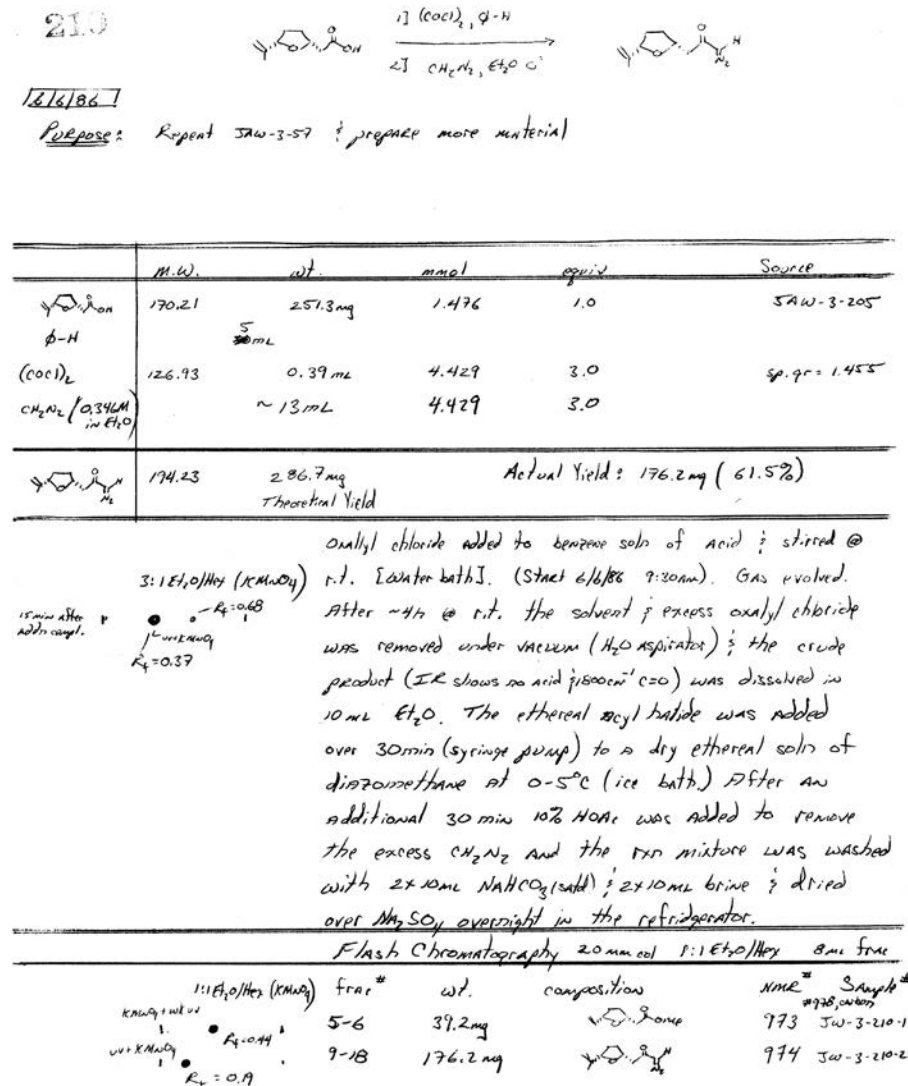 210
1] (COCl)2, φ-H
2] CH2N2, Et2O
OH
O
H
N2
6/6/86
Purpose: Repeat JAW-3-57 & prepare more material
M.W. wt. mmol equiv Source
170.21 251.3mg 1.476 1.0 JAW-3-205
φ-H 5 mL
(COCl)2 126.93 0.39 mL 4.429 3.0 sp.gr = 1.455
CH2N2 (0.346M in Et2O) ~ 13 mL 4.429 3.0
194.23 286.7mg Actual Yield: 176.2mg (61.5%)
Theoretical Yield
Oxallyl chloride added to benzene soln of acid & stirred @
3:1 Et2O/Hex (KMnO4) r.t. [water bath]. (Start 6/6/86 9:30am). Gas evolved.
15 min after addn compl. Rf=0.68 After ~4h @ r.t. the solvent & excess oxalyl chloride
uv+KMnO4 was removed under vacuum (H2O aspirator) & the crude
Rf=0.37 product (IR shows no acid & 1800cm-1 C=O) was dissolved in
10 mL Et2O. The ethereal acyl halide was added
over 30min (syringe pump) to a dry ethereal soln of
diazomethane at 0-5°C (ice bath.) After an
additional 30 min 10% HOAc was added to remove
the excess CH2N2 and the rxn mixture was washed
with 2x10mL NaHCO3(satd) & 2x10mL brine & dried
over Na2SO4 overnight in the refridgerator.
Flash Chromatography 20 mm col 1:1 Et2O/Hex 8mL frac
1:1 Et2O/Hex (KMnO4) frac# wt. composition NMR# Sample#
#978, carbon
KMnO4+wk uv Rf=0.44 5-6 39.2mg OMe 973 JW-3-210-1
uv+KMnO4 9-18 176.2mg 974 JW-3-210-2
Rf = 0.19